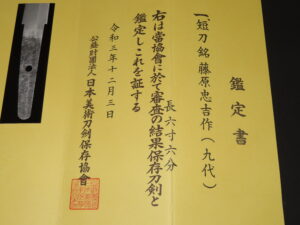 鑑定書
一、短刀 銘 藤原忠吉作（九代）
長六寸六分
右は當協會に於て審査の結果保存刀剣と
鑑定しこれを証する
令和三年十二月三日
公益財團法人日本美術刀剣保存協會